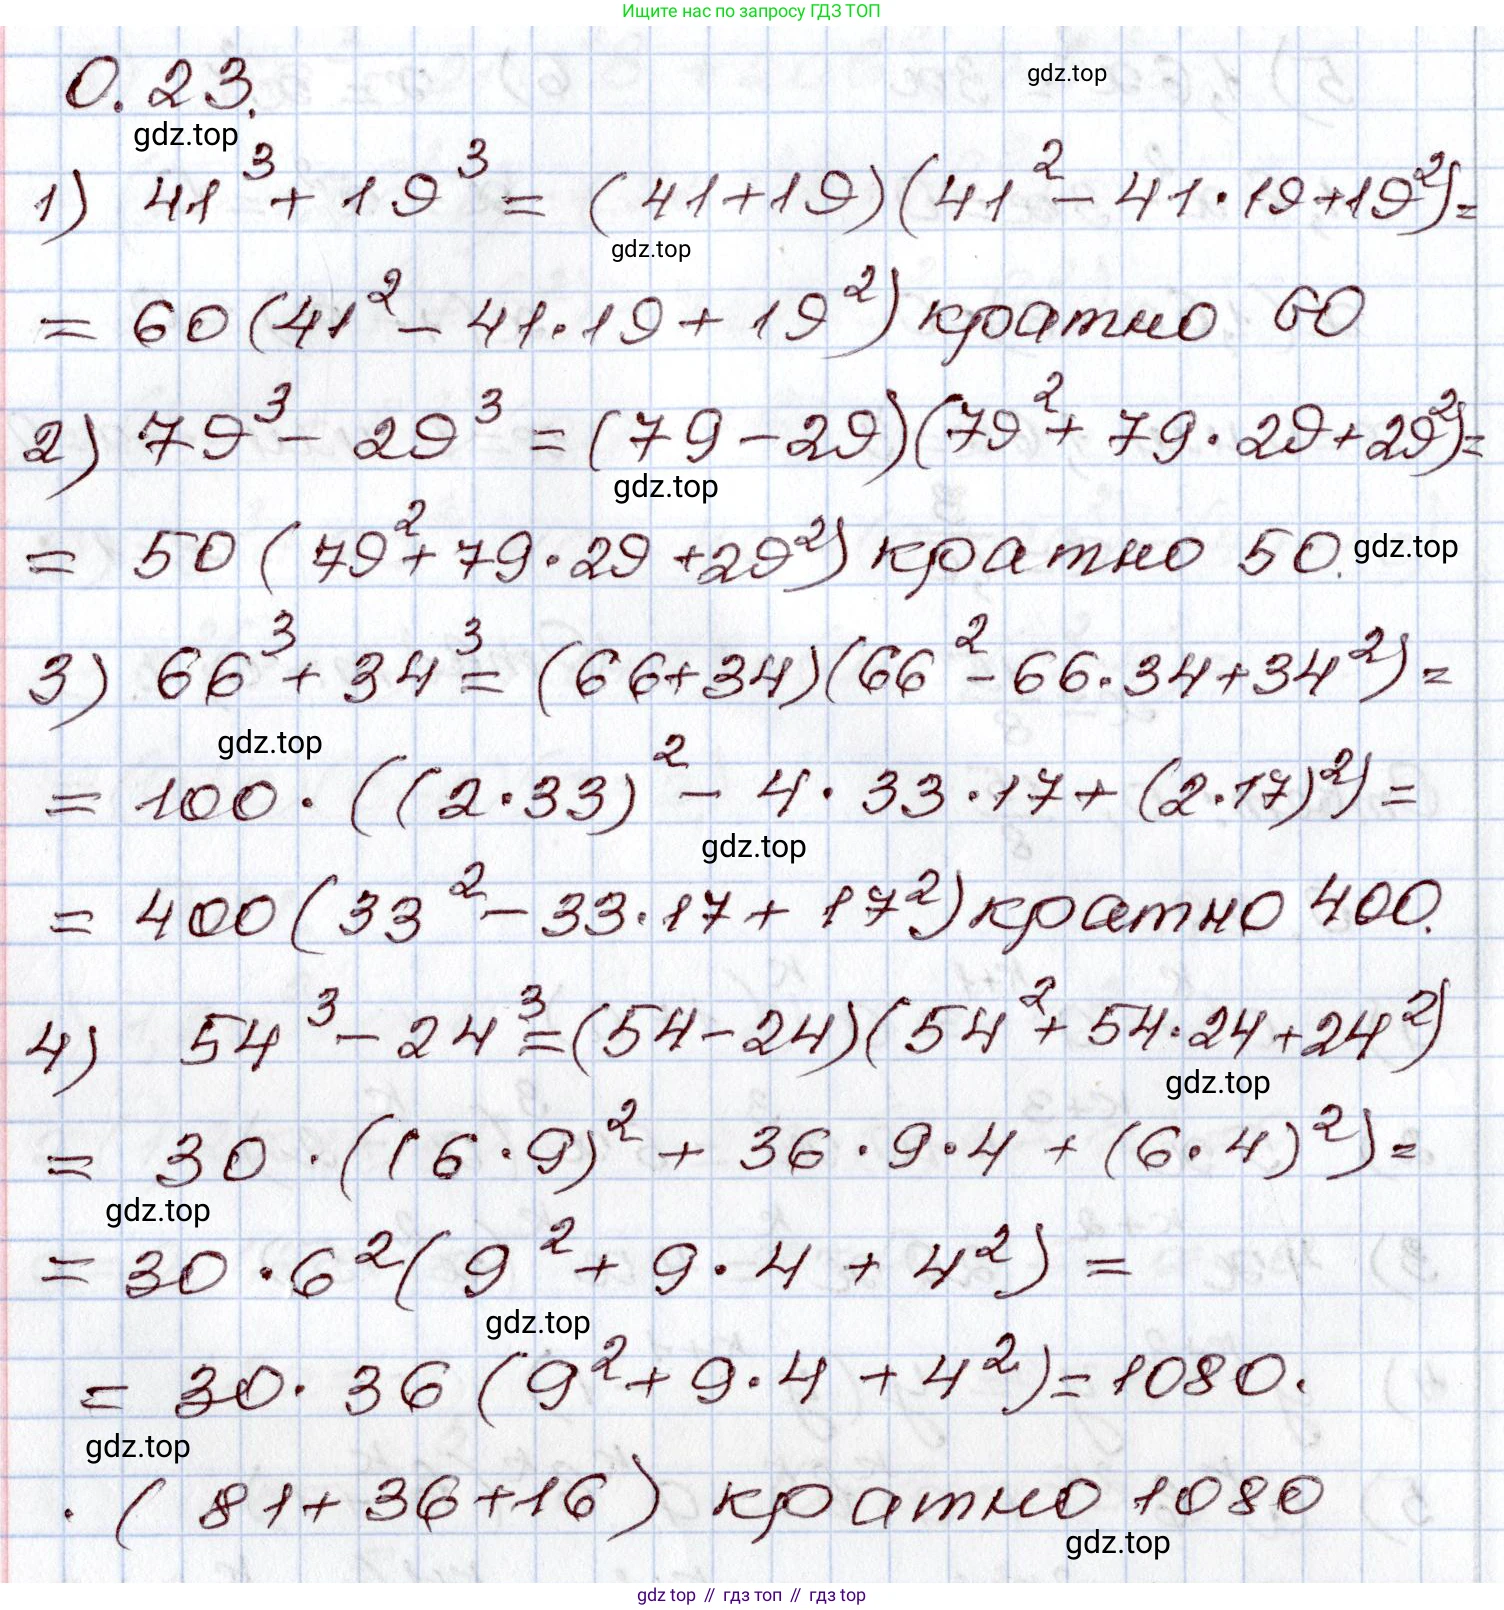 Ищите нас по запросу ГДЗ ТОП
0.23.
gdz.top
gdz.top
1) 41³ + 19³ = (41+19)(41² - 41·19+19²)=
gdz.top
= 60(41² - 41·19 + 19²) кратно 60
2) 79³ - 29³ = (79-29)(79² + 79·29+29²)=
gdz.top
= 50(79² + 79·29 + 29²) кратно 50.
gdz.top
3) 66³ + 34³ = (66+34)(66² - 66·34+34²) =
gdz.top
= 100·((2·33)² - 4·33·17 + (2·17)²) =
gdz.top
= 400(33² - 33·17 + 17²) кратно 400.
4) 54³ - 24³ = (54-24)(54² + 54·24+24²)
gdz.top
= 30·((6·9)² + 36·9·4 + (6·4)²) =
gdz.top
= 30·6²(9² + 9·4 + 4²) =
gdz.top
= 30·36(9² + 9·4 + 4²) = 1080·
gdz.top
·(81+36+16) кратно 1080
gdz.top
gdz top // гдз топ // гдз top